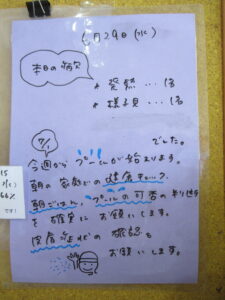 6月29日(水)
本日の病欠
* 発熱…1名
* 様子見…1名
でした。
7/1
今週からプールが始まります。
朝の家庭での検温
朝ごはん、プールの可否の
を確実にお願いします。
などの確認も
お願いします。
15
66%
です!